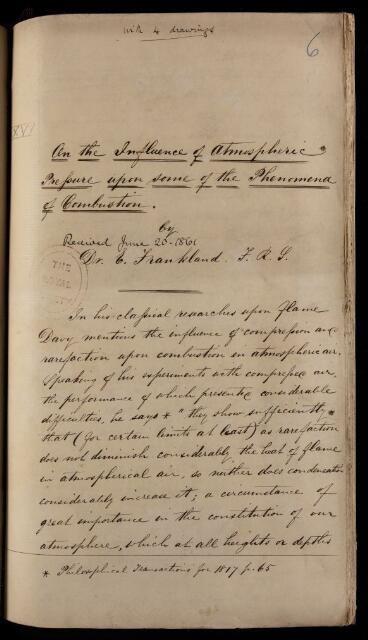 with 4 drawings
6
XVI
On the Influence of Atmospheric
Pressure upon some of the Phenomena
of Combustion.
by
Received June 20 - 1861
Dr. E. Frankland. F. R. S.
THE
ROYAL
SOCIETY
In his classical researches upon flame
Davy mentions the influence of compression and
rarefaction upon combustion in atmospheric air.
Speaking of his experiments with compressed air
the performance of which presented considerable
difficulties, he says * "they show sufficiently
that (for certain limits at least) as rarefaction
does not diminish considerably the heat of flame
in atmospherical air, so neither does condensation
considerably increase it; a circumstance of
great importance in the constitution of our
atmosphere, which at all heights or depths
* Philosophical Transactions for 1817 p. 65